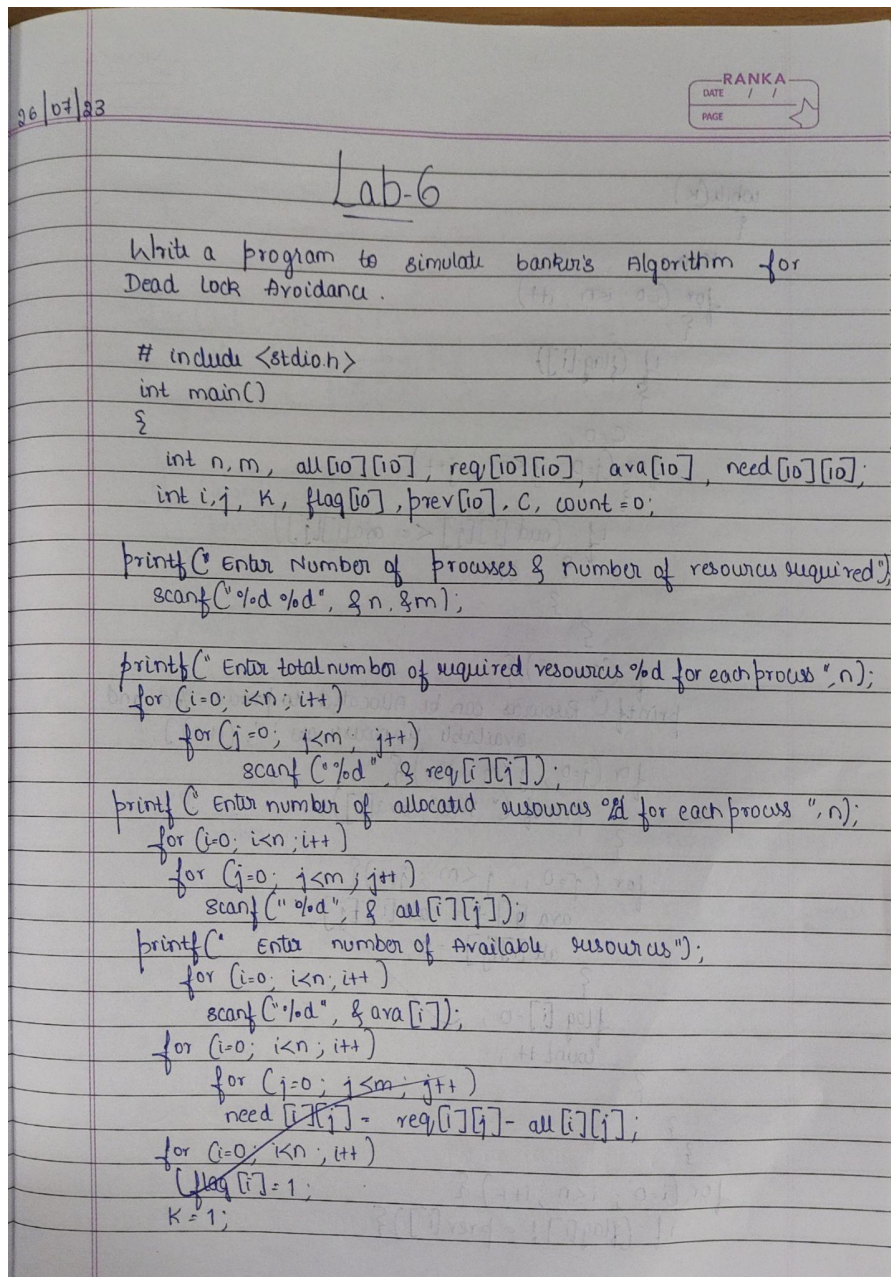 RANKA
DATE / /
PAGE
26/07/23
Lab-6
Write a program to simulate banker's Algorithm for
Dead lock Avoidance.
# include <stdio.h>
int main()
{
int n, m, all[10][10], req[10][10], ava[10], need[10][10];
int i, j, K, flag[10], prev[10], C, count = 0;
printf(" Enter Number of processes & number of resources required");
scanf("%d %d", &n, &m);
printf(" Enter total number of required resources %d for each process ", n);
for (i=0; i<n; i++)
for (j=0; j<m; j++)
scanf ("%d", & req[i][j]);
printf (" Enter number of allocated resources %d for each process ", n);
for (i=0; i<n; i++)
for (j=0; j<m; j++)
scanf (" %d", & all[i][j]);
printf(" Enter number of Available resources");
for (i=0; i<n; i++)
scanf ("%d", & ava[i]);
for (i=0; i<n; i++)
for (j=0; j<m; j++)
need [i][j] = req[i][j] - all[i][j];
for (i=0; i<n; i++)
flag [i] = 1;
K = 1;